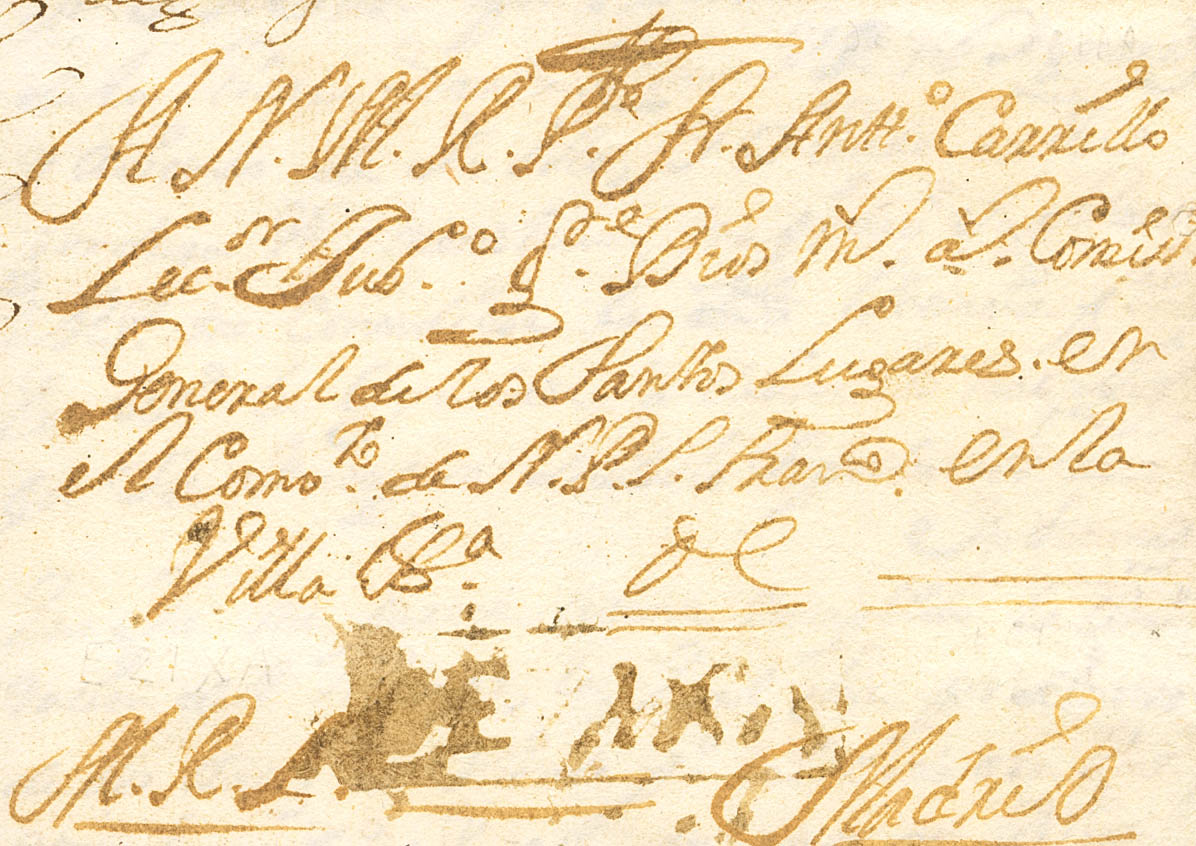 A N. M. R. P.e Fr. Antt.o Carrillo
Lec.or Jub.do g.de Dios m.s a.s Comis.o
General de los Santos Lugares. en
el Comv.to de N. P. S. Fran.co en la
Villa &.a de
M. R. P. Madrid